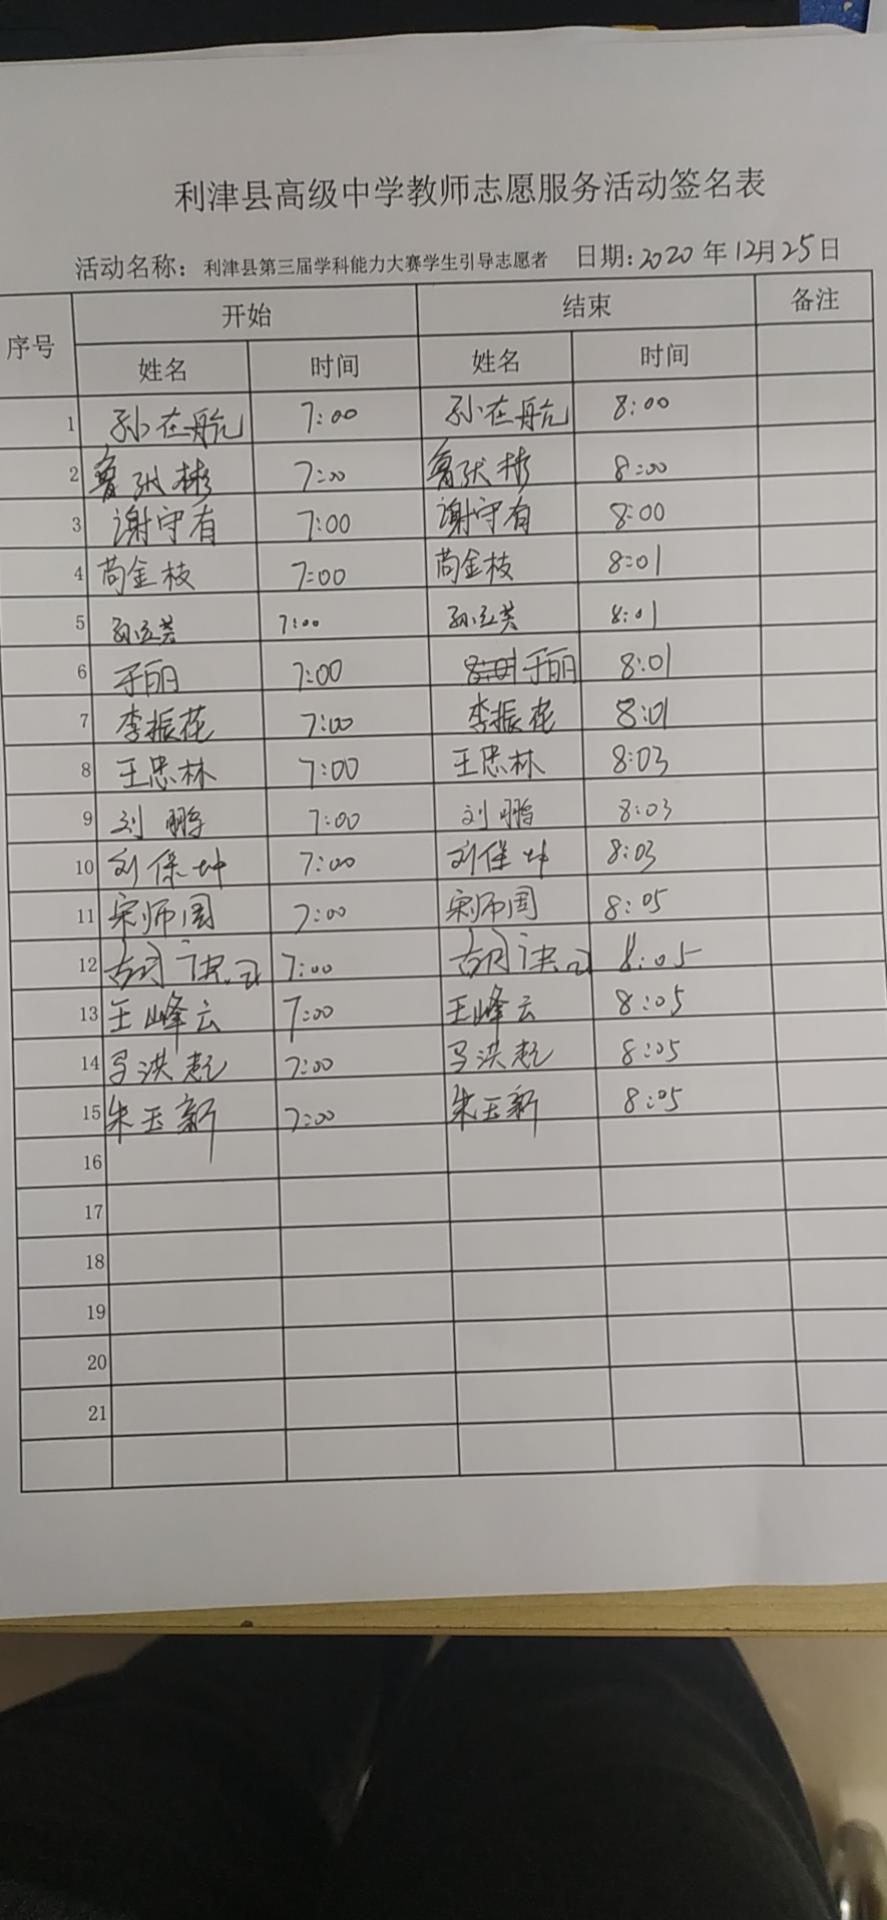 利津县高级中学教师志愿服务活动签名表
活动名称：利津县第三届学科能力大赛学生引导志愿者 日期:2020年12月25日
序号 开始 结束 备注
姓名 时间 姓名 时间
1 孙在航 7:00 孙在航 8:00
2 7:00 8:00
3 谢守有 7:00 谢守有 8:00
4 苟金枝 7:00 苟金枝 8:01
5 7:00 8:01
6 于丽 7:00 于丽 8:01
7 李振花 7:00 李振花 8:01
8 王忠林 7:00 王忠林 8:03
9 刘鹏 7:00 刘鹏 8:03
10 刘保坤 7:00 刘保坤 8:03
11 宋师周 7:00 宋师周 8:05
12 7:00 8:05
13 王峰云 7:00 王峰云 8:05
14 马洪起 7:00 马洪起 8:05
15 朱玉新 7:00 朱玉新 8:05
16
17
18
19
20
21